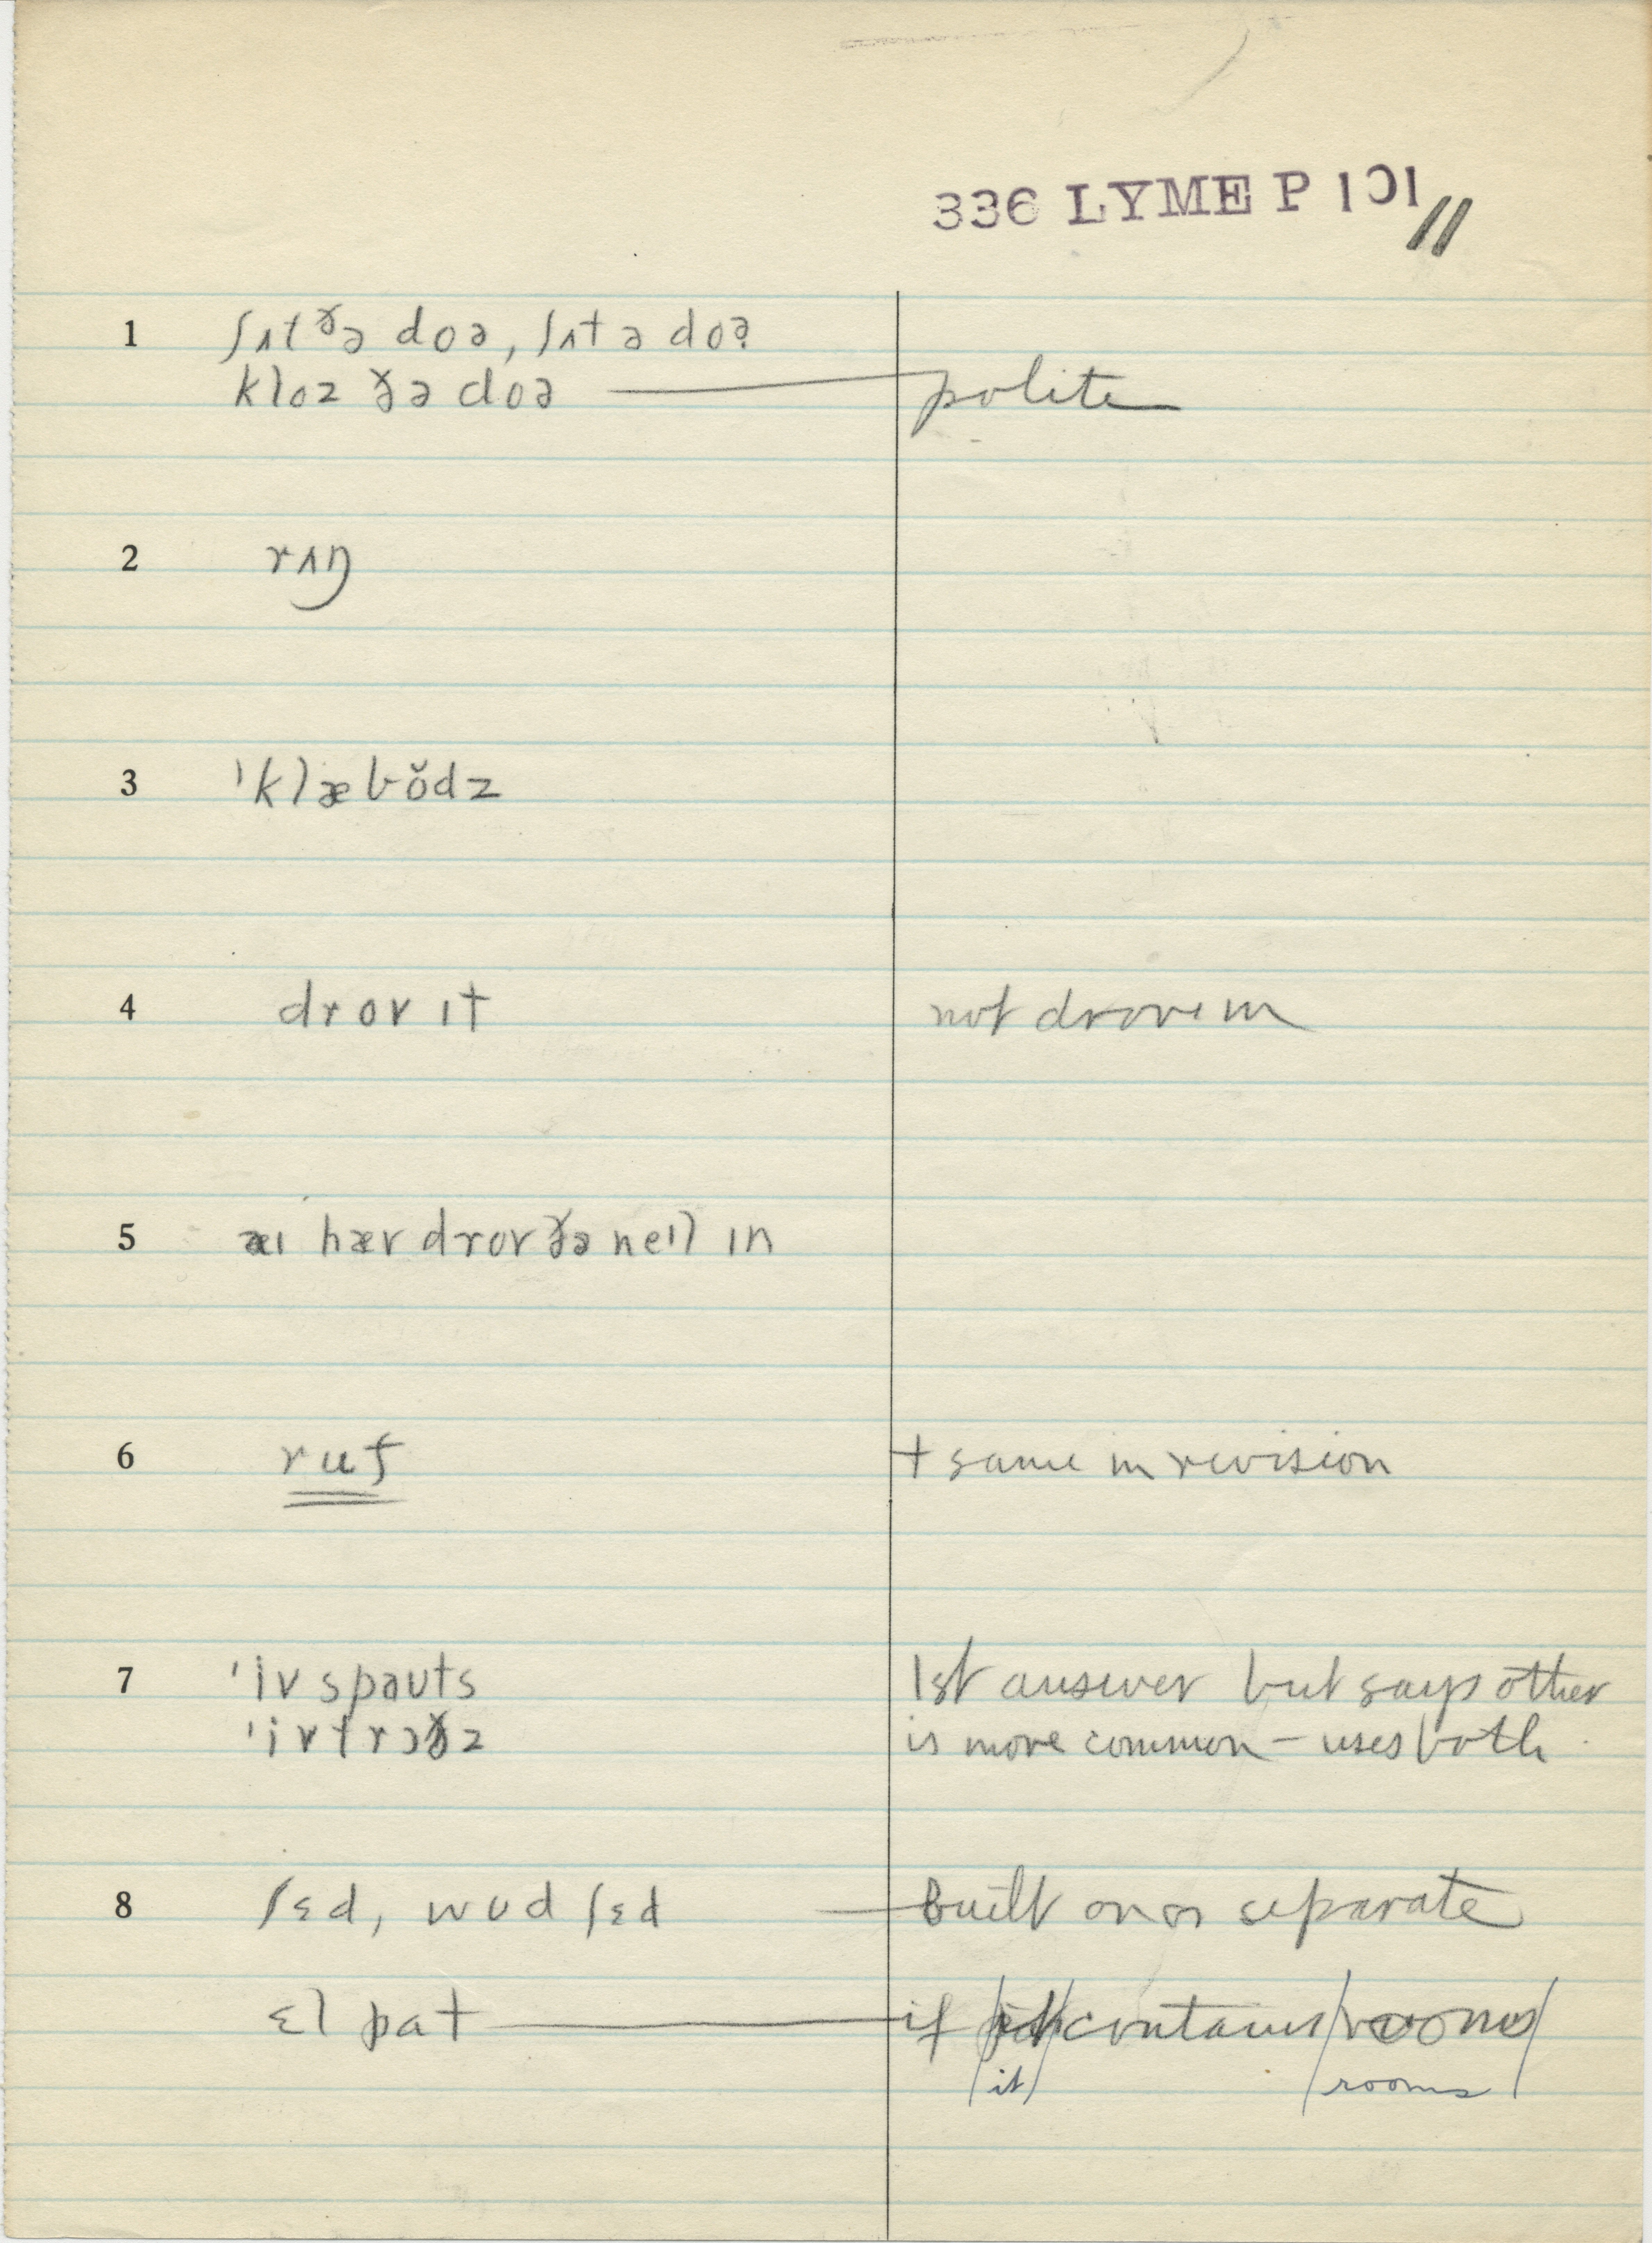 336 LYME P 101
11
1 ʃʌt ðə doə, ʃʌt ə doə
kloz ðə doə — polite
2 rʌŋ
3 'klæbŏdz
4 drov ɪt not drove in
5 æɪ hæv drov ðə neɪl ɪn
6 ruf + same in revision
7 'iv spəuts 1st answer but says other
'ivtrɔðz is more common – uses both
8 ʃɛd, wʊd ʃɛd — built on or separate
ɛl pat — if it contains rooms
it rooms